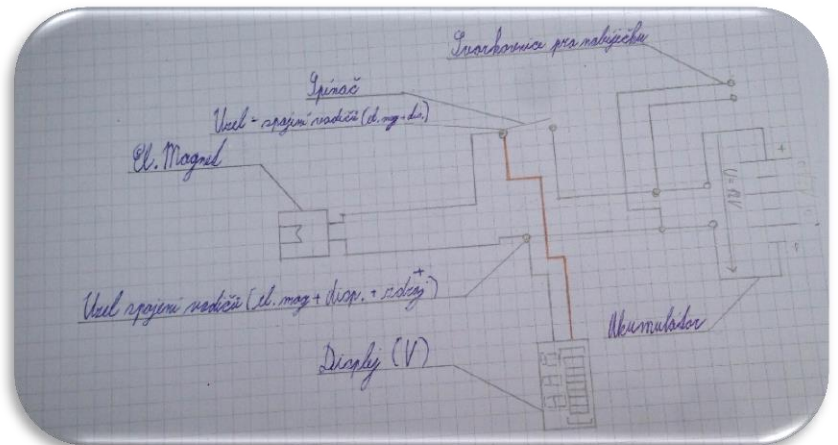 Svorkovnice pro nabíječku
Spínač
Uzel - spojení vodičů (el. mag + dis.)
El. Magnet
+
U= 12V
-
Uzel spojení vodičů (el. mag + disp. + zdroj +)
Akumulátor
Displej (V)